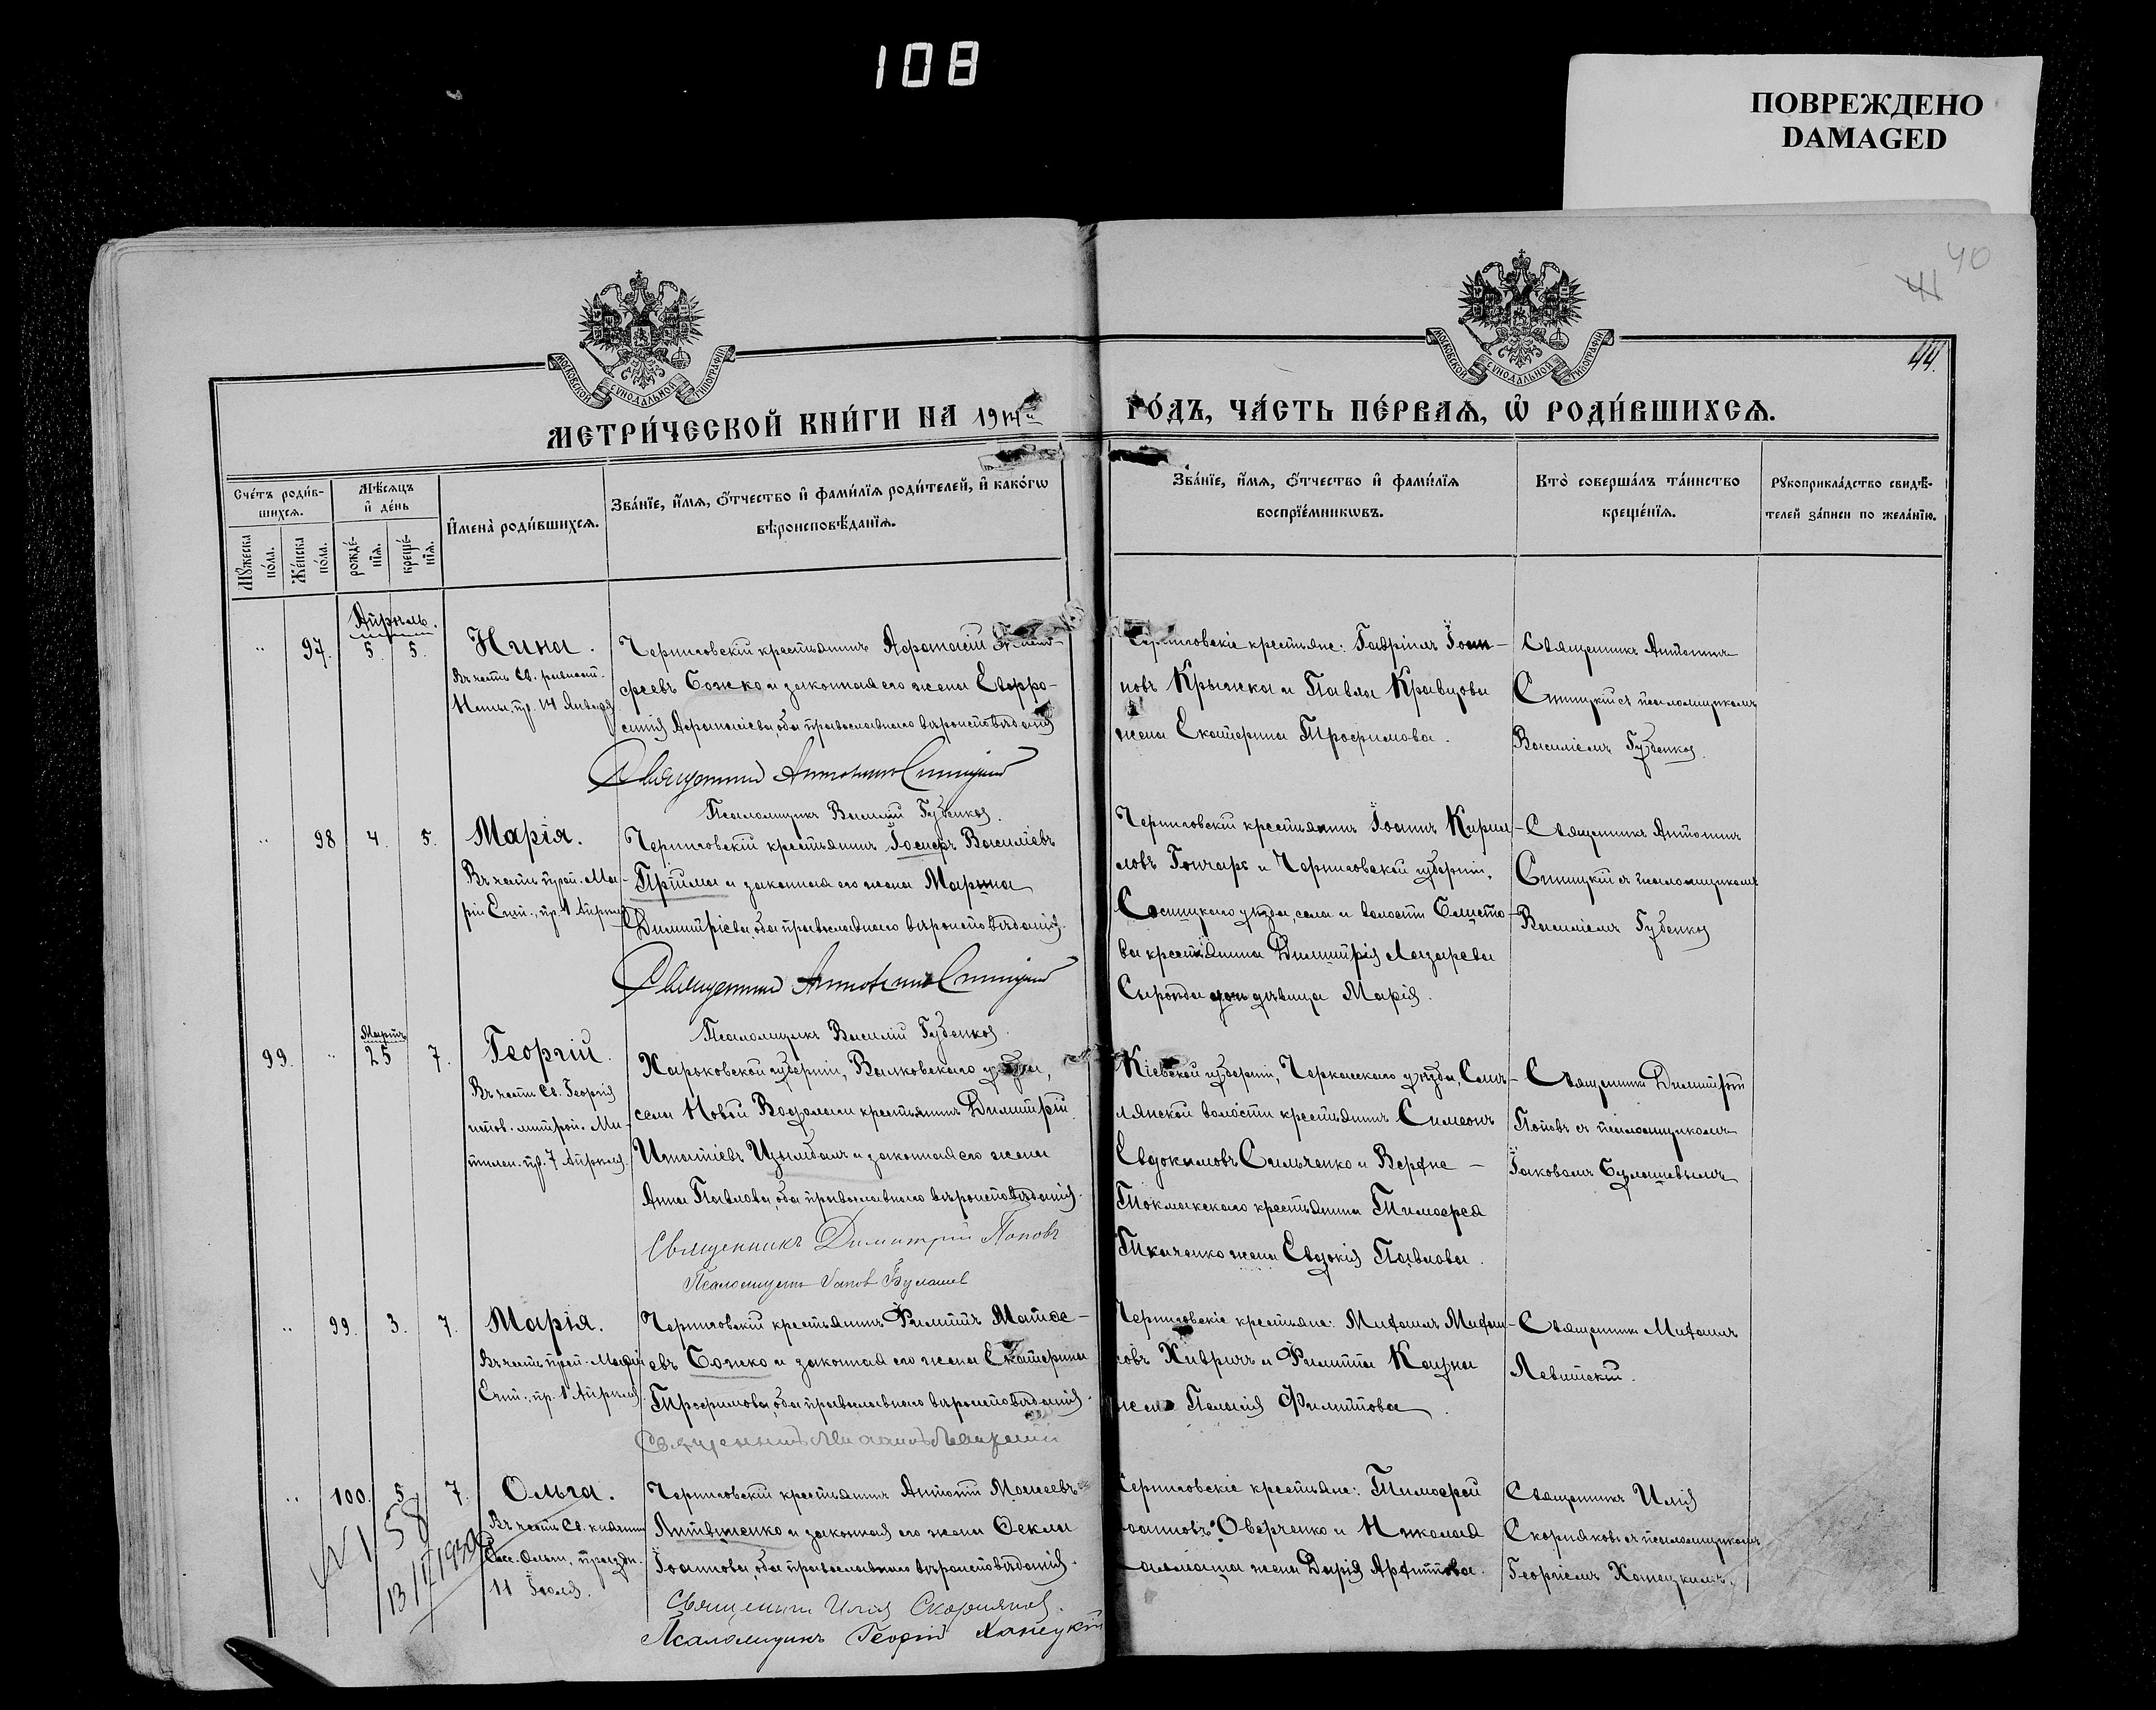 108
ПОВРЕЖДЕНО
DAMAGED
40
41
44.
МОСКОВСКОЙ СѴНОДАЛЬНОЙ ТИПОГРАФІИ
МОСКОВСКОЙ СѴНОДАЛЬНОЙ ТИПОГРАФІИ
МЕТРИ́ЧЕСКОЙ КНИ́ГИ НА 19
ГО́ДЪ, ЧА́СТЬ ПЕ́РВАѦ, Ѡ҆ РОДИ́ВШИХСѦ.
Сче́тъ роди́в-
шихсѧ.
Мꙋ́жеска по́ла.
Же́нска по́ла.
Мѣ́сѧцъ
и҆ де́нь
рожде́-нїѧ.
креще́-нїѧ.
И҆мена̀ роди́вшихсѧ.
Зва́нїе, и҆́мѧ, ѻ҆́тчество и҆ фамі́лїѧ роди́телей, и҆ како́гѡ
вѣроисповѣ́данїѧ.
Зва́нїе, и҆́мѧ, ѻ҆́тчество и҆ фамі́лїѧ
воспрїе́мникѡвъ.
Кто̀ соверша́лъ та́инство
креще́нїѧ.
Рꙋкоприкла́дство свидѣ́-
телей за́писи по жела́нїю.
Апрѣль.
97. 5. 5.
Нина.
Въ честь св. равноап.
Нины, пр. 14 Января
Черниговскій крестьянинъ Аѳанасій
ѳеевъ Божко и законная его жена Евфро-
синія Аѳанасіева, оба православнаго вѣроисповѣданія
Священникъ Антонинъ Синицкій
Псаломщикъ Василій Губенко.
Черниговскіе крестьяне: Гавріилъ Іоан-
новъ Крыжка и Павла Кравцова
жена Екатерина Трофимова.
Священникъ Антонинъ
Синицкій съ псаломщикомъ
Василіемъ Губенко.
98 4. 5.
Марія.
Въ честь преп. Ма-
ріи Егип., пр. 1 Апрѣля
Черниговскій крестьянинъ Іосифъ Василіевъ
Прійма и законная его жена Марина
Димитріева, оба православнаго вѣроисповѣданія.
Священникъ Антонинъ Синицкій
Псаломщикъ Василій Губенко.
Черниговскій крестьянинъ Іоаннъ Кирил-
ловъ Гончаръ и Черниговской губерніи,
Сосницкаго уѣзда, села и волости
ва крестьянина Димитрія Лазарева
дѣвица Марія.
Священникъ Антонинъ
Синицкій съ псаломщикомъ
Василіемъ Губенко
Мартъ
99. 25 7.
Георгій.
Въ честь св. Георгія
испов. митроп. Ми-
тилен. пр. 7 Апрѣля.
Харьковской губерніи, Валковскаго уѣзда,
села Новой Водолаги крестьянинъ Димитрій
Игнатіевъ Цымбалъ и законная его жена
Анна Павлова, оба православнаго вѣроисповѣданія.
Священникъ Димитрій Поповъ
Псаломщикъ Іаков Булашев
Кіевской губерніи, Черкасскаго уѣзда, Смѣ-
лянской волости крестьянинъ Симеонъ
Евдокимовъ Сильченко и Верхне-
Токмакскаго крестьянина Тимоѳея
Ткаченко жена Евдокія Павлова.
Священникъ Димитрій
Поповъ съ псаломщикомъ
Іаковомъ Булашевымъ
99. 3. 7.
Марія.
Въ честь преп. Маріи
Егип., пр. 1 Апрѣля.
Черниговскій крестьянинъ Филиппъ Матѳе-
евъ Божко и законная его жена Екатерина
Трофимова, оба православнаго вѣроисповѣданія.
Священникъ Михаилъ Левитскій
Черниговскіе крестьяне: Михаилъ Михаи-
ловъ Хивричъ и Филиппа Кацна
жена Пелагія Филиппова.
Священникъ Михаилъ
Левитскій.
100. 5. 7.
Ольга.
Въ честь св. княгини
Ольги, праздн.
11 Іюля.
N 158
Черниговскій крестьянинъ Антоній Моисеевъ
Литвиненко и законная его жена Ѳекла
Іоаннова, оба православнаго вѣроисповѣданія.
Священникъ Илія Скорняковъ.
Псаломщикъ Георгій Ханецкій
Черниговскіе крестьяне: Тимоѳей
Іоанновъ Оверченко и Николая
жена Дарія Архиппова.
Священникъ Илія
Скорняковъ съ псаломщикомъ
Георгіемъ Ханецкимъ.